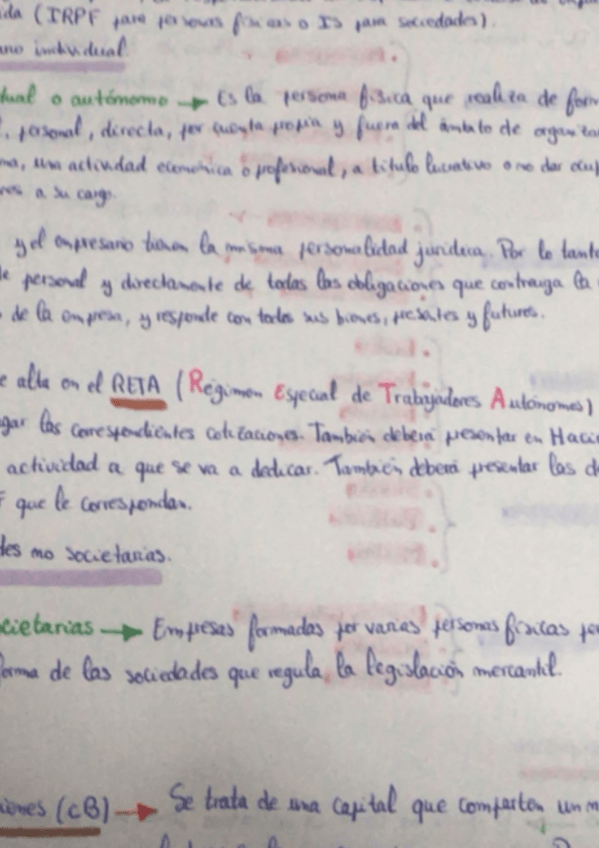 ida (IRPF para personas físicas o IS para sociedades).
ano individual
dual o autónomo → Es la persona física que realiza de form
, personal, directa, por cuenta propia y fuera del ámbito de organiza
na, una actividad económica o profesional, a título lucrativo o no dar ocup
res a su cargo.
y el empresario tienen la misma personalidad jurídica. Por lo tanto
e personal y directamente de todas las obligaciones que contraiga la
de la empresa, y responde con todos sus bienes, presentes y futuros.
e alta en el RETA (Régimen Especial de Trabajadores Autónomos)
gar las correspondientes cotizaciones. También deberá presentar en Haci
actividad a que se va a dedicar. También deberá presentar las d
F que le correspondan.
des no societarias.
cietarias → Empresas formadas por varias personas físicas per
forma de las sociedades que regula la legislación mercantil.
iones (CB) → Se trata de una capital que comparten un m